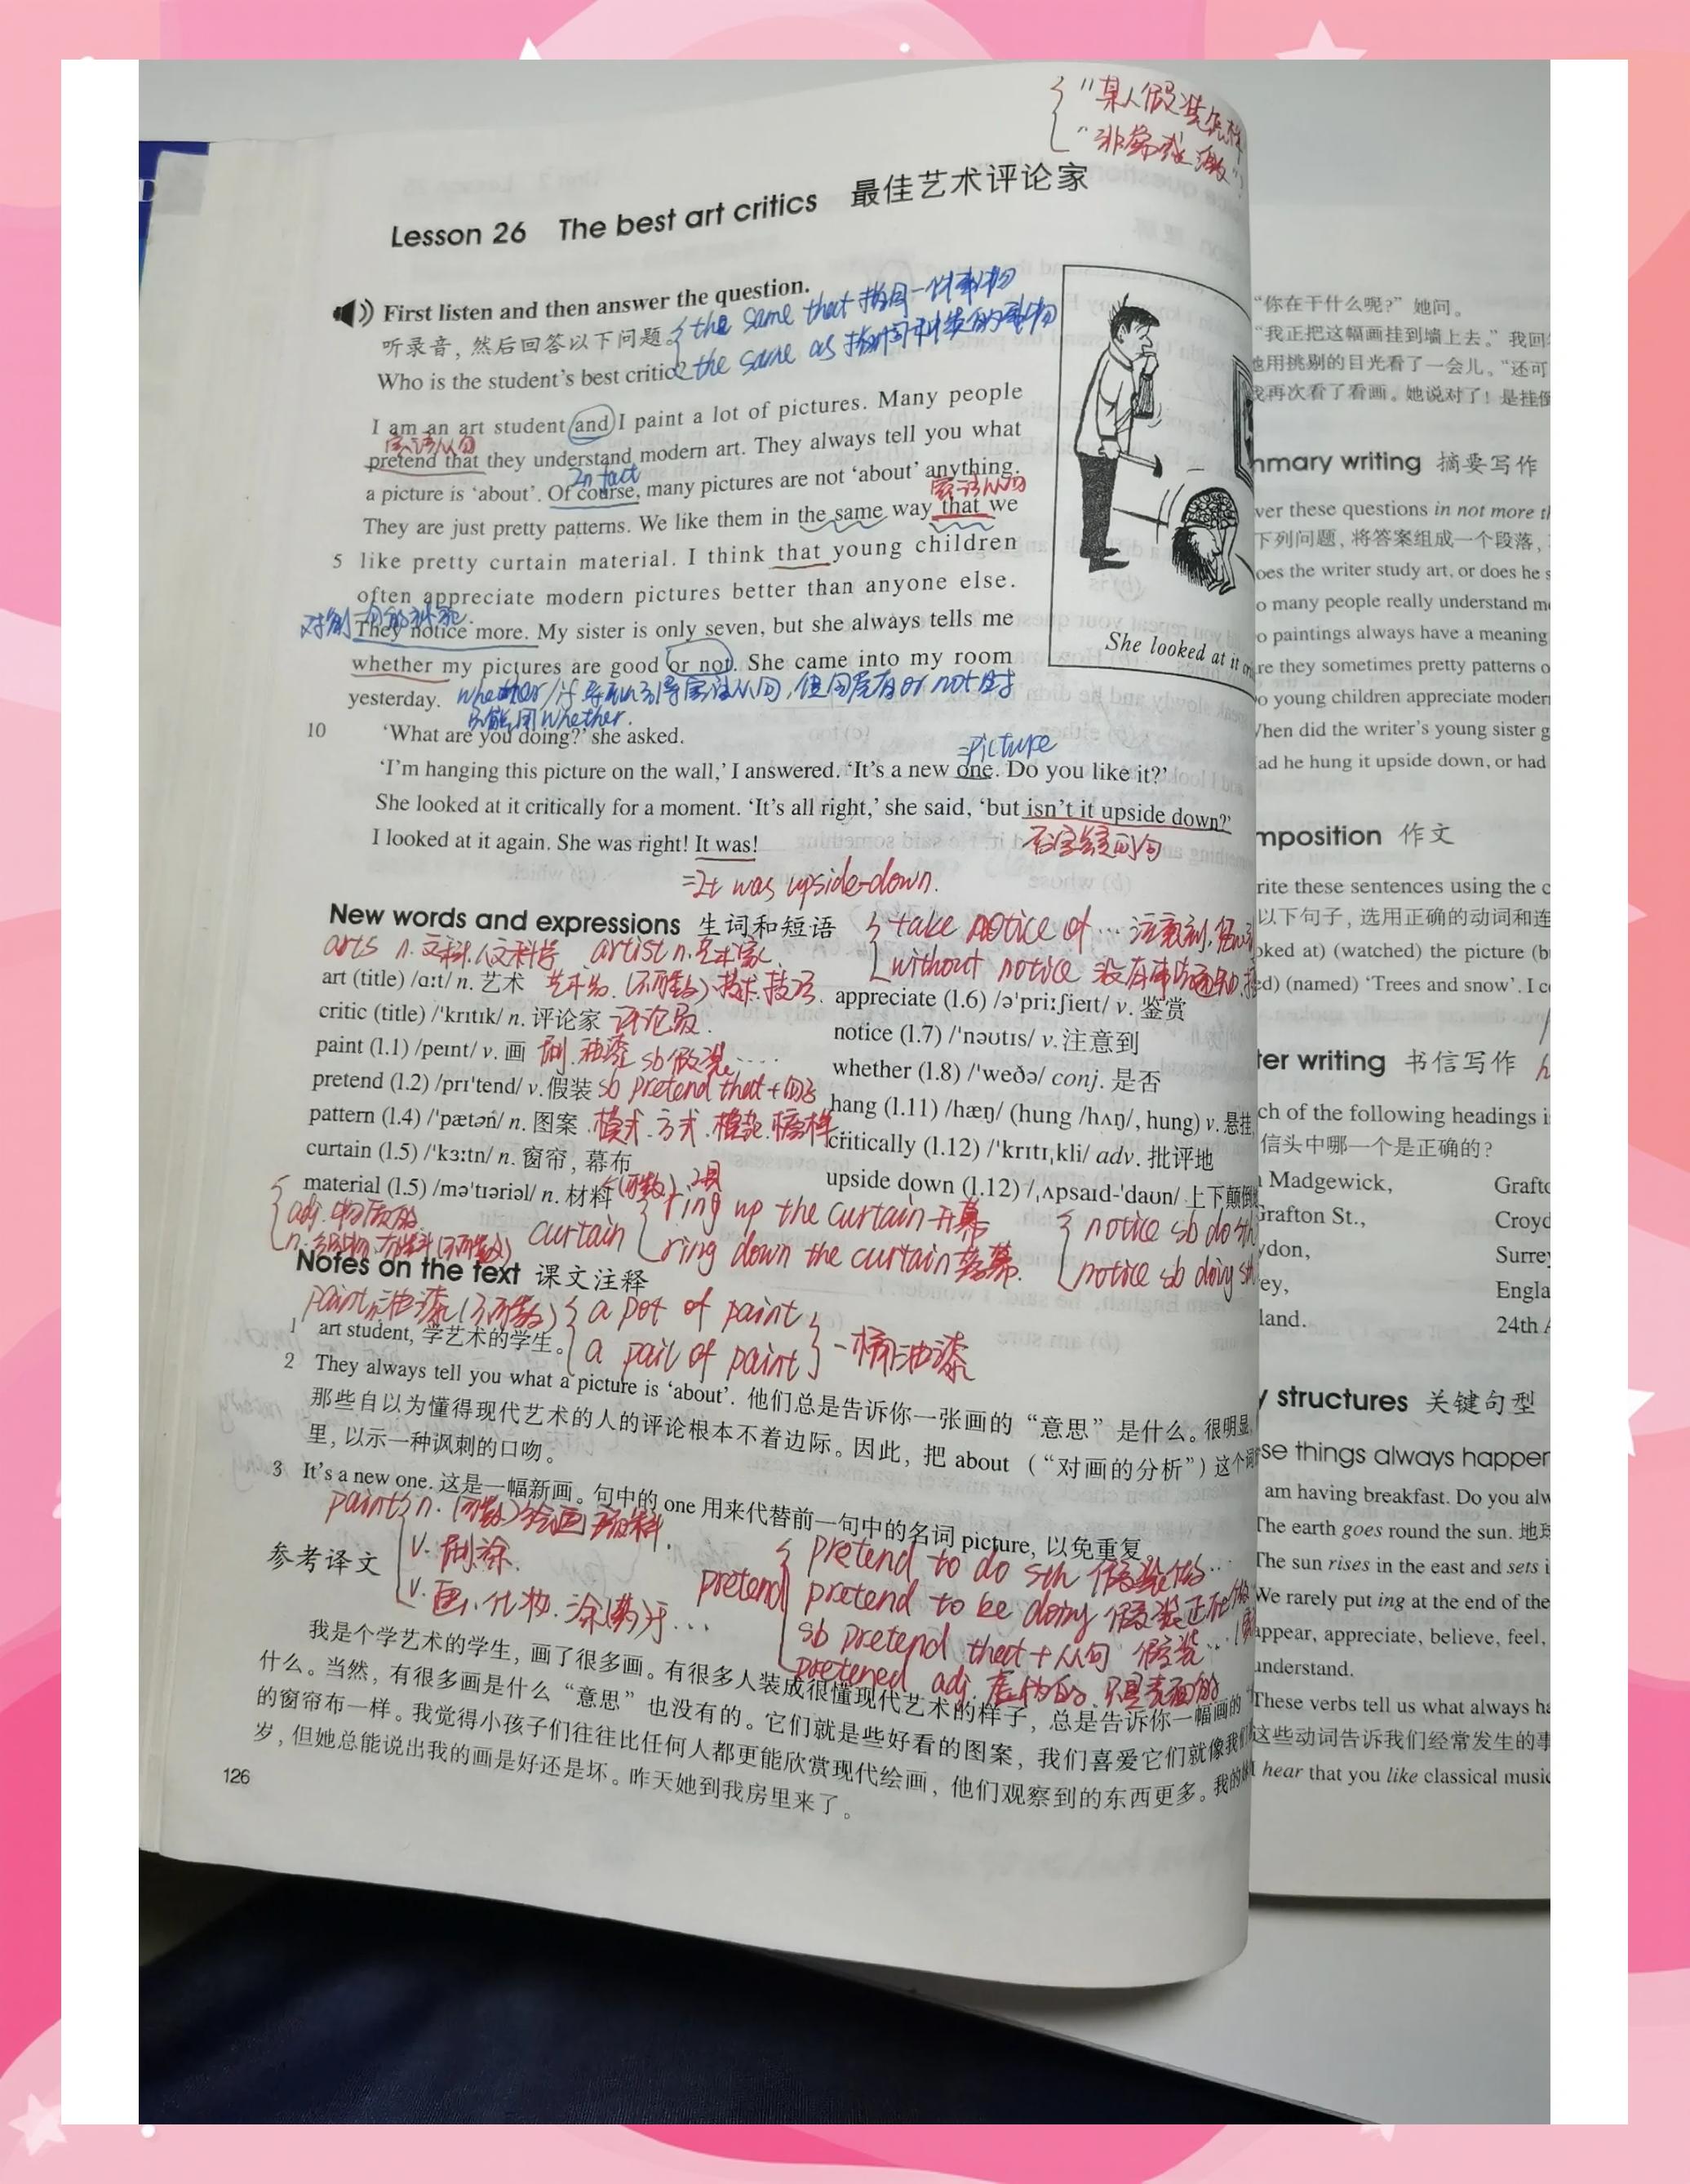 "某人假装
"非常感激"
Lesson 26 The best art critics 最佳艺术评论家
First listen and then answer the question.
听录音，然后回答以下问题。
the same that 指同一件事物
the same as 指同种类的事物
Who is the student's best critic?
I am an art student and I paint a lot of pictures. Many people
宾语从句
pretend that they understand modern art. They always tell you what
In fact
a picture is 'about'. Of course, many pictures are not 'about' anything.
宾语从句
They are just pretty patterns. We like them in the same way that we
5 like pretty curtain material. I think that young children
often appreciate modern pictures better than anyone else.
They notice more. My sister is only seven, but she always tells me
whether my pictures are good or not. She came into my room
yesterday.
whether/if 引导宾语从句, 但句尾有or not时
只能用whether.
10 'What are you doing?' she asked.
=picture
'I'm hanging this picture on the wall,' I answered. 'It's a new one. Do you like it?'
She looked at it critically for a moment. 'It's all right,' she said, 'but isn't it upside down?'
I looked at it again. She was right! It was!
否定疑问句
=It was upside-down.
She looked at it
New words and expressions 生词和短语
take notice of … 注意到,
without notice 没有事先通知
arts n.文科,人文科学 artist n.艺术家
art (title) /ɑːt/ n. 艺术 艺术品 (不可数) 技术.技巧.
critic (title) /ˈkrɪtɪk/ n. 评论家 评论员.
paint (l.1) /peɪnt/ v. 画 刷.油漆 sb假装……
pretend (l.2) /prɪˈtend/ v. 假装 sb pretend that+句子
pattern (l.4) /ˈpætən/ n. 图案 .模式.方式.模范.榜样.
curtain (l.5) /ˈkɜːtn/ n. 窗帘，幕布
material (l.5) /məˈtɪərɪəl/ n. 材料 (可数)
adj. 物质的
curtain
ring up the curtain 开幕
ring down the curtain 落幕.
appreciate (l.6) /əˈpriːʃieɪt/ v. 鉴赏
notice (l.7) /ˈnəʊtɪs/ v. 注意到
whether (l.8) /ˈweðə/ conj. 是否
hang (l.11) /hæŋ/ (hung /hʌŋ/, hung) v. 悬挂,
critically (l.12) /ˈkrɪtɪˌkli/ adv. 批评地
upside down (l.12) /ˌʌpsaɪd-ˈdaʊn/ 上下颠倒
notice sb do sth
notice sb doing sth
Notes on the text 课文注释
paint n.油漆(不可数)
a pot of paint
a pail of paint
一桶油漆
1 art student, 学艺术的学生。
2 They always tell you what a picture is 'about'. 他们总是告诉你一张画的“意思”是什么。很明显,
那些自以为懂得现代艺术的人的评论根本不着边际。因此，把 about （“对画的分析”）这个词
里，以示一种讽刺的口吻。
3 It's a new one. 这是一幅新画。句中的 one 用来代替前一句中的名词 picture, 以免重复。
paints n. (可数)绘画颜料.
v. 刷涂.
v. 画.化妆.涂
pretend
pretend to do sth 假装做…
pretend to be doing 假装正在做
sb pretend that+从句 假装…
pretened adj.
参考译文
我是个学艺术的学生，画了很多画。有很多人装成很懂现代艺术的样子，总是告诉你一幅画的
什么。当然，有很多画是什么“意思”也没有的。它们就是些好看的图案，我们喜爱它们就像我们
的窗帘布一样。我觉得小孩子们往往比任何人都更能欣赏现代绘画，他们观察到的东西更多。我的
岁，但她总能说出我的画是好还是坏。昨天她到我房里来了。
126
“你在干什么呢？”她问。
“我正把这幅画挂到墙上去。”我回
用挑剔的目光看了一会儿。“还可
我再次看了看画。她说对了！是挂倒
mmary writing 摘要写作
ver these questions in not more
下列问题，将答案组成一个段落，
oes the writer study art, or does he
o many people really understand
o paintings always have a meaning
re they sometimes pretty patterns
o young children appreciate modern
When did the writer's young sister
ad he hung it upside down, or had
mposition 作文
rite these sentences using the
以下句子，选用正确的动词和连
oked at) (watched) the picture
ed) (named) 'Trees and snow'. I
ter writing 书信写作
ch of the following headings
信头中哪一个是正确的？
Madgewick,
Grafton St.,
ydon,
ey,
land.
Grafto
Croyd
Surrey
Engla
24th
y structures 关键句型
se things always happen
am having breakfast. Do you
The earth goes round the sun. 地球
The sun rises in the east and sets
We rarely put ing at the end of the
appear, appreciate, believe, feel,
understand.
These verbs tell us what always
这些动词告诉我们经常发生的事
hear that you like classical music